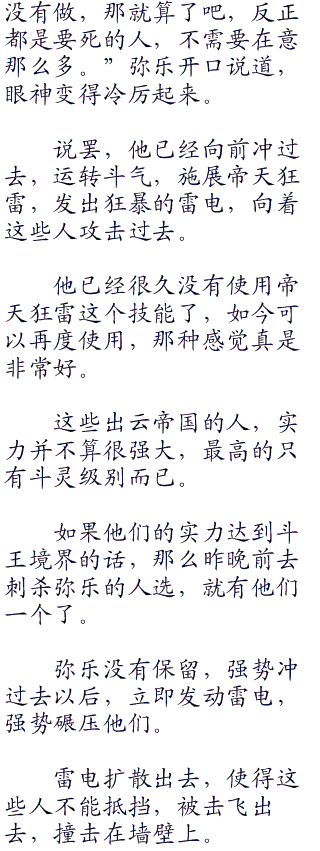 没有做，那就算了吧，反正
都是要死的人，不需要在意
那么多。”弥乐开口说道，
眼神变得冷厉起来。
说罢，他已经向前冲过
去，运转斗气，施展帝天狂
雷，发出狂暴的雷电，向着
这些人攻击过去。
他已经很久没有使用帝
天狂雷这个技能了，如今可
以再度使用，那种感觉真是
非常好。
这些出云帝国的人，实
力并不算很强大，最高的只
有斗灵级别而已。
如果他们的实力达到斗
王境界的话，那么昨晚前去
刺杀弥乐的人选，就有他们
一个了。
弥乐没有保留，强势冲
过去以后，立即发动雷电，
强势碾压他们。
雷电扩散出去，使得这
些人不能抵挡，被击飞出
去，撞击在墙壁上。